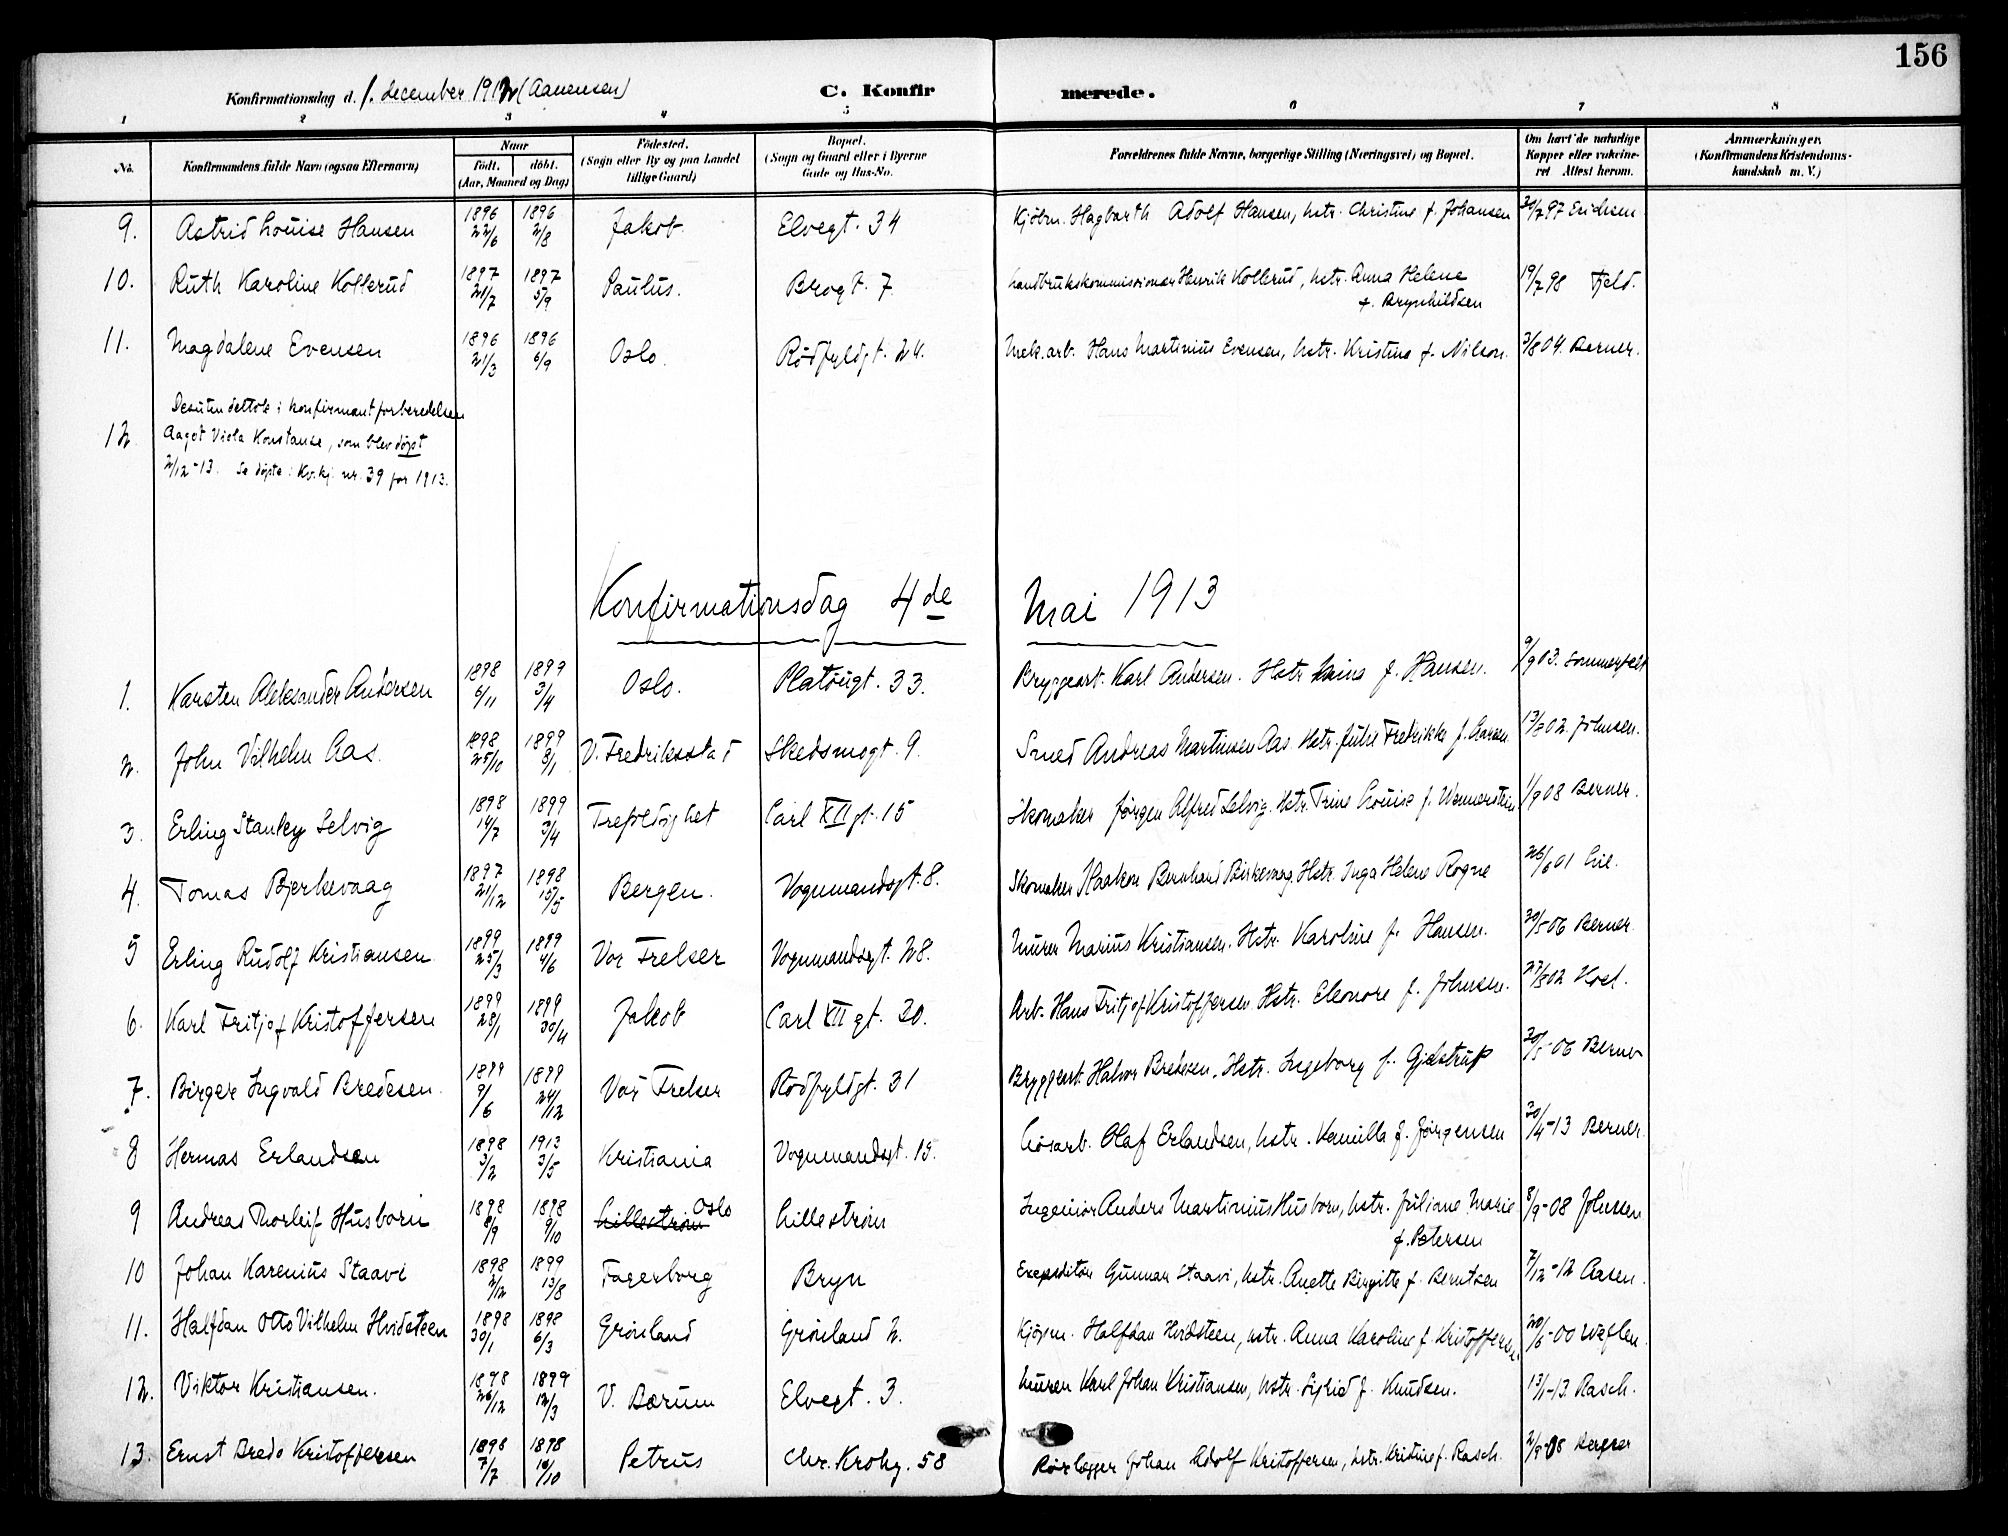 156
Konfirmationsdag d. 1. december 1912 (Aanensen) C. Konfirmerede.
1 2 3 4 5 6 7 8
No. Konfirmandens fulde Navn (ogsaa Efternavn) Naar født. døbt. (Aar, Maaned og Dag) Fødested. (Sogn eller By og paa Landet tillige Gaard) Bopæl. (Sogn og Gaard eller i Byerne Gade og Hus-No. Forældrenes fulde Navne, borgerlige Stilling (Næringsvei) og Bopæl. Om havt de naturlige Kopper eller vakcineret Attest herom. Anmærkninger. (Konfirmandens Kristendomskundskab m. V.)
9. Astrid Louise Hansen 1896 22/6 1896 2/8 Jakob. Elvegt. 34 Kjøbm. Hagbarth Adolf Hansen, hstr. Christine f. Johansen 30/7 97 Erichsen
10. Ruth Karoline Kollerud 1897 21/7 1897 5/9 Paulus. Brogt. 7 Landbrukskommissionær Henrik Kollerud, hstr. Anna Helene f. Brynhildsen 19/7 98 Fjeld.
11. Magdalene Evensen 1896 21/3 1896 6/9 Oslo. Rødfyldgt. 24. Mek. arb. Hans Martinius Evensen, hstr. Kristine f. Nilsen. 3/8 04. Berner.
Desuten deltok i konfirmantforberedelsen
12. Aagot Viola Konstanse, som blev døpt
2/12-13. Se døpte i Kv.kj. nr. 39 for 1913.
Konfirmationsdag 4de Mai 1913
1. Karsten Aleksander Andersen 1898 6/11 1899 3/4 Oslo. Platougt. 33. Bryggearb. Karl Andersen. Hstr. f. Hansen. 9/9 03. Sommerfelt
2. John Vilhelm Aas. 1898 25/10 1899 8/1 V. Fredriksstad Skedsmogt. 9. Smed Andreas Martinsen Aas. Hstr. Julie Fredrikke f. 02. Johnsen.
3. Erling Stanley Selvig 1898 14/7 1899 3/4 Trefoldighet Carl XII gt. 15 Skomaker Jørgen Alfred Selvig. Hstr. Trine Louise f. Wennerstrøm 1/9 08 Berner.
4. Tomas Bjerkevaag 1897 21/12 1898 15/5 Bergen. Vognmandsgt. 8. Skomaker Haakon Bernhard Birkevaag. Hstr. Inga Helene Rogne 26/6 01 Lie.
5 Erling Rudolf Kristiansen 1899 25/3 1899 4/6 Vor Frelser Vognmandsgt. 28. Murer Marius Kristiansen. Hstr. Karoline f. Hansen. 30/5 06 Berner.
6. Karl Fritjof Kristoffersen 1899 28/1 1899 30/4 Jakob Carl XII gt. 20. Arb. Hans Fritjof Kristoffersen Hstr. Eleonore f. Johnsen. 27/8 02
7. Birger Ingvald Bredesen. 1899 9/6 1899 24/12 Vor Frelser Rødfyldgt. 31 Bryggearb. Halvor Bredesen, Hstr. Ingeborg f. Gjelstrup 30/5-06 Berner
8 Hermas Erlandsen 1898 3/2 1913 3/5 Kristiania Vognmandsgt. 15. Løsarb. Olaf Erlandsen, hstr. Kamilla f. Jørgensen 30/4-13 Berner.
9 Andreas Thorleif Husborn 1898 8/9 1898 9/10 Lillestrøm Oslo Lillestrøm Ingeniør Anders Martinius Husborn, hstr. Juliane Marie f. Petersen 8/9-08 Johnsen
10 Johan Karenius Staavi 1898 2/12 1899 13/8 Fagerborg Bryn Expeditør Gunnar Staavi, hstr. Anette Birgitte f. Berntsen 7/12-12 Aasen.
11. Halfdan Otto Vilhelm Hvidsteen 1898 30/1 1898 6/3 Grønland Grønland 2. Kjøpm. Halfdan Hvidsteen, hstr. Anna Karoline f. Kristoffersen. 20/6-00
12. Viktor Kristiansen. 1898 26/12 1899 12/3 V. Bærum Elvegt. 3. Murer Karl Johan Kristiansen, hstr. Sigrid f. Knudsen. 13/1-13. Rasch.
13. Ernst Bredo Kristoffersen 1898 7/7 1898 16/10 Petrus Chr. Krohg. 58 Rørlægger Johan Adolf Kristoffersen, hstr. Kristine f. Rasch. 2/9-08 Berner